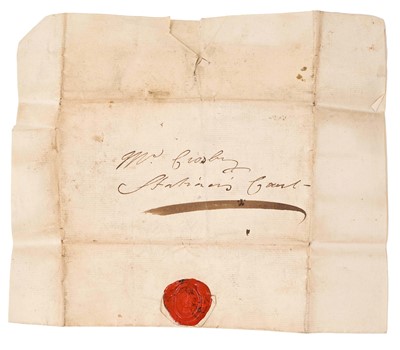 Mr. Crosby
Stationers Court